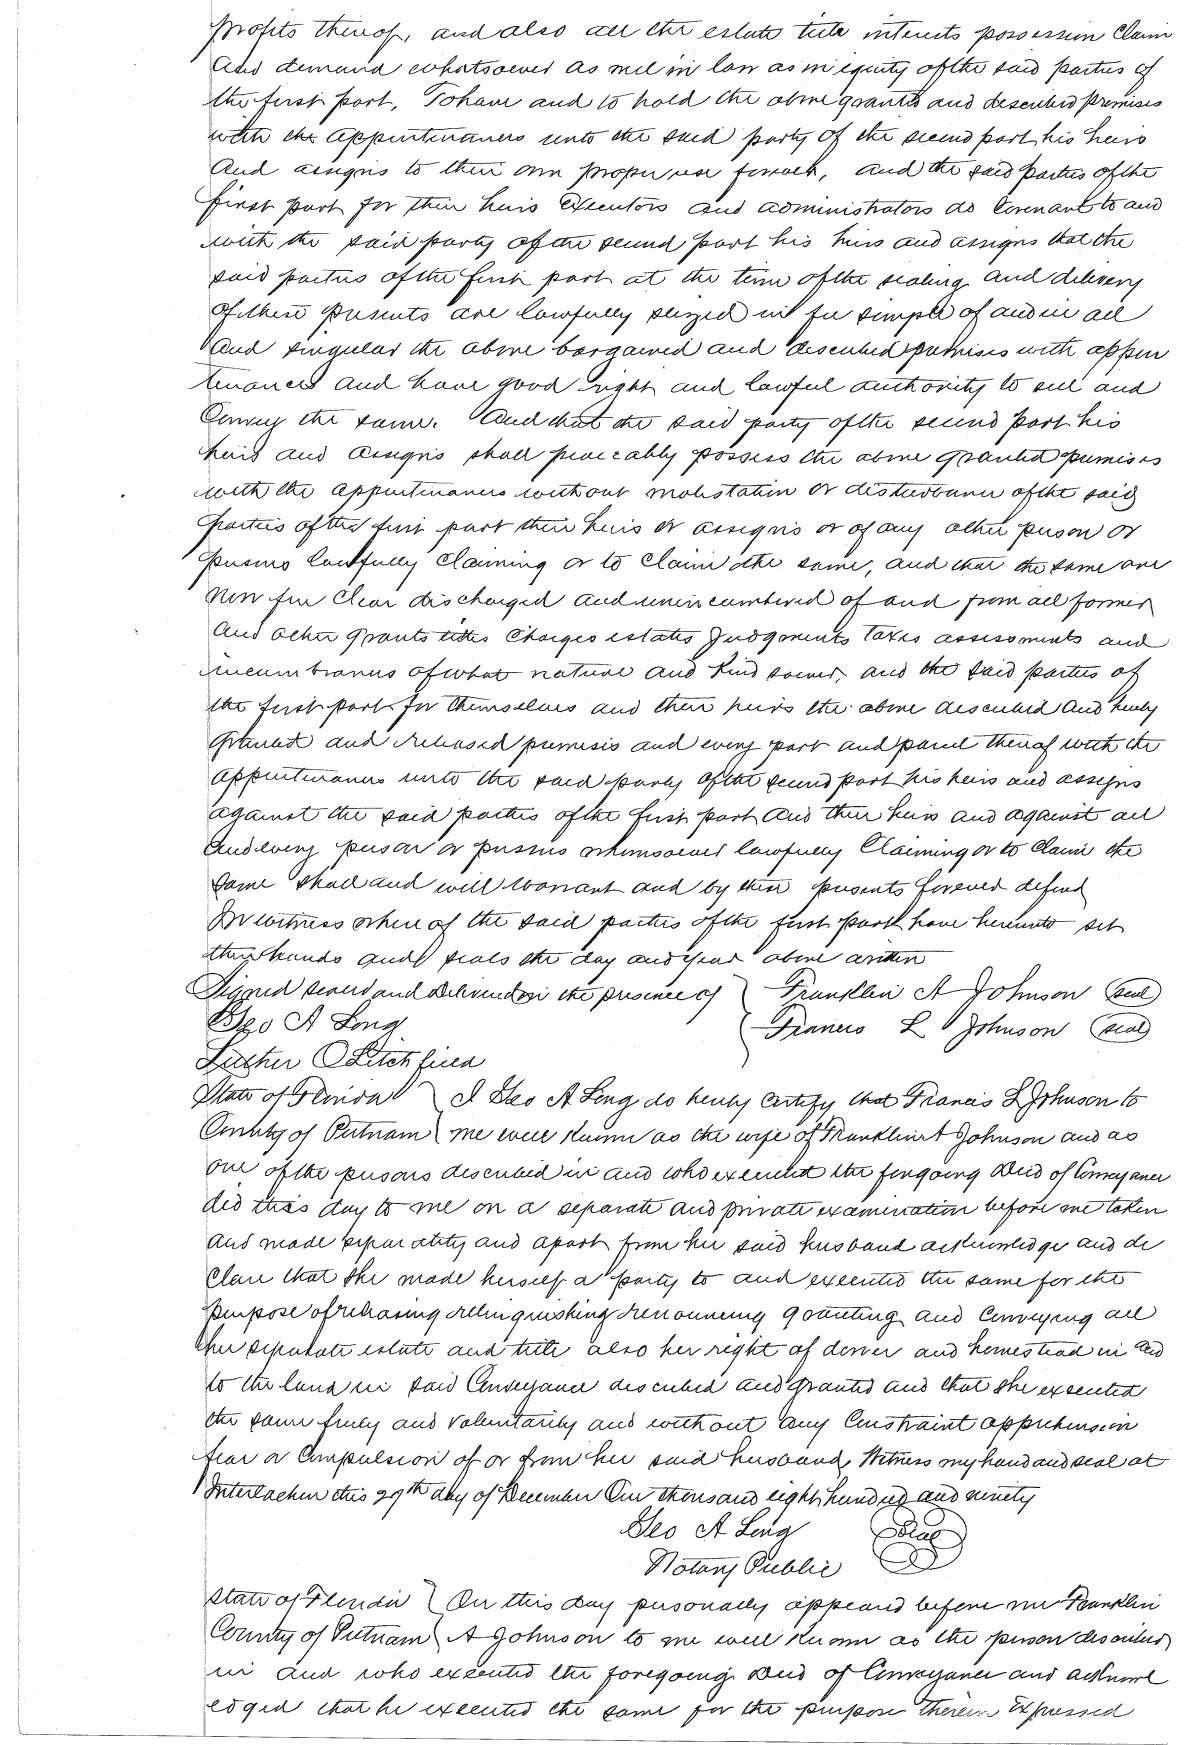 profits thereof, and also all the estate title interests possession claim
and demand whatsoever as well in law as in equity of the said parties of
the first part, To have and to hold the above granted and described premises
with the appurtenances unto the said party of the second part his heirs
and assigns to their own proper use forever, and the said parties of the
first part for their heirs executors and administrators do Covenant to and
with the said party of the second part his heirs and assigns that the
said parties of the first part at the time of the sealing and delivery
of these presents are lawfully seized in fee simple of and in all
and singular the above bargained and described premises with appur
tenances and have good right and lawful authority to sell and
Convey the same. And that the said party of the second part his
heirs and assigns shall peaceably possess the above granted premises
with the appurtenances without molestation or disturbance of the said
parties of the first part their heirs or assigns or of any other person or
persons lawfully claiming or to claim the same, and that the same are
now free clear discharged and unincumbered of and from all former
and other grants titles Charges estates Judgments taxes assessments and
incumbrances of what nature and kind soever, and the said parties of
the first part for themselves and their heirs the above described and hereby
granted and released premises and every part and parcel thereof with the
appurtenances unto the said party of the second part his heirs and assigns
against the said parties of the first part and their heirs and against all
and every person or persons whomsoever lawfully Claiming or to Claim the
same shall and will warrant and by these presents forever defend
In witness where of the said parties of the first part have hereunto set
their hands and seals the day and year above written
Signed sealed and delivered in the presence of } Franklin A Johnson (seal)
Geo A Long } Francis L Johnson (seal)
Luther C Litchfield
State of Florida } I Geo A Long do hereby certify that Francis L Johnson to
County of Putnam } me well known as the wife of Franklin A Johnson and as
one of the persons described in and who executed the foregoing Deed of Conveyance
did this day to me on a separate and private examination before me taken
and made separately and apart from her said husband acknowledge and de
clare that she made herself a party to and executed the same for the
purpose of releasing relinquishing renouncing granting and Conveying all
her separate estate and title also her right of dower and homestead in and
to the land in said Conveyance described and granted and that she executed
the same freely and voluntarily and without any Constraint apprehension
fear or Compulsion of or from her said husband, Witness my hand and seal at
Interlachen this 29th day of December One thousand eight hundred and ninety
Geo A Long (Seal)
Notary Public
State of Florida } On this day personally appeared before me Franklin
County of Putnam } A Johnson to me well known as the person described
in and who executed the foregoing Deed of Conveyance and acknowl
edged that he executed the same for the purpose therein expressed